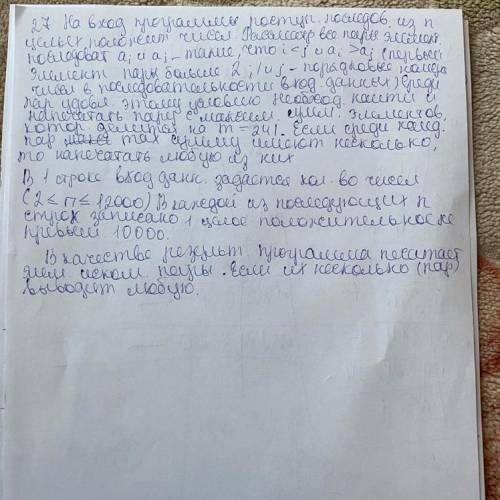 27. На вход программы поступ. последов. из n
целых положит чисел. Рассмотр все пары элемент.
последоват ai и aj - такие, что i < j и ai > aj (первый
элемент пары больше 2, i и j - порядковые номера
чисел в последовательности вход данных) Среди
пар удовл. этому условию необход. найти и
напечатать пару с максим. сумм. элементов,
котор. делится на m = 241. Если среди найд.
пар max сумму имеют несколько,
то напечатать любую из них
В 1 строке вход данн. задается кол. во чисел
(2 ≤ n ≤ 12000) В каждой из последующих n
строк записано 1 целое положительное не
превыш 10000.
В качестве результ программа печатает
элем. иском. пары. Если их несколько (пар)
выводит любую.